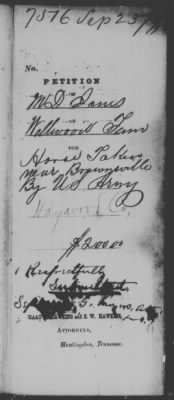 7516 Sep 25/7
No.
PETITION
OF
M D Jones
OF
Wellwood Tenn
FOR
Horse Taken
near Brownsville
By US Army
Haywood Co.
$200.00
Respectfully
Submitted
ATTORNEYS,
Huntingdon, Tennessee.